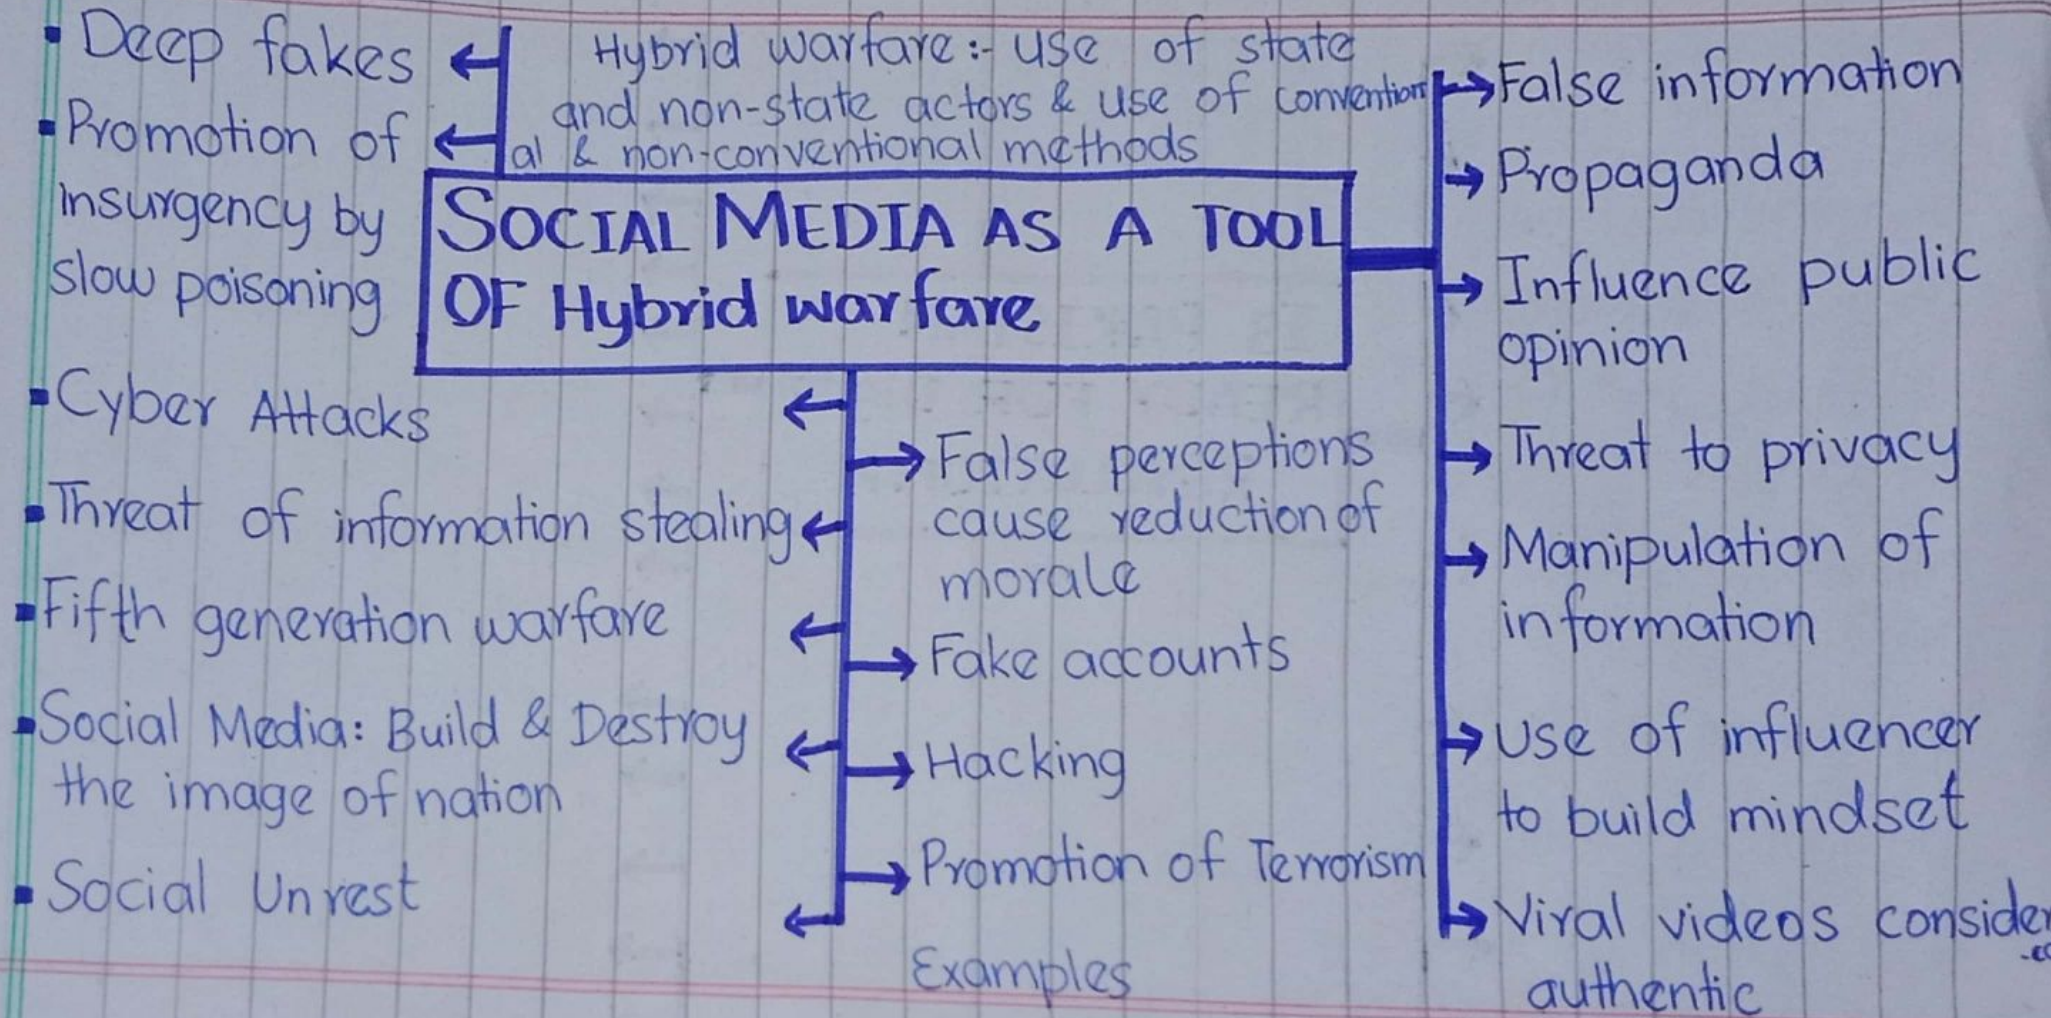 Hybrid warfare:- use of state
and non-state actors & use of convention
al & non-conventional methods
SOCIAL MEDIA AS A TOOL
OF Hybrid warfare
Deep fakes
Promotion of
insurgency by
slow poisoning
Cyber Attacks
Threat of information stealing
Fifth generation warfare
Social Media: Build & Destroy
the image of nation
Social Unrest
False perceptions
cause reduction of
morale
Fake accounts
Hacking
Promotion of Terrorism
Examples
False information
Propaganda
Influence public
opinion
Threat to privacy
Manipulation of
information
use of influencer
to build mindset
Viral videos consider
-ed
authentic